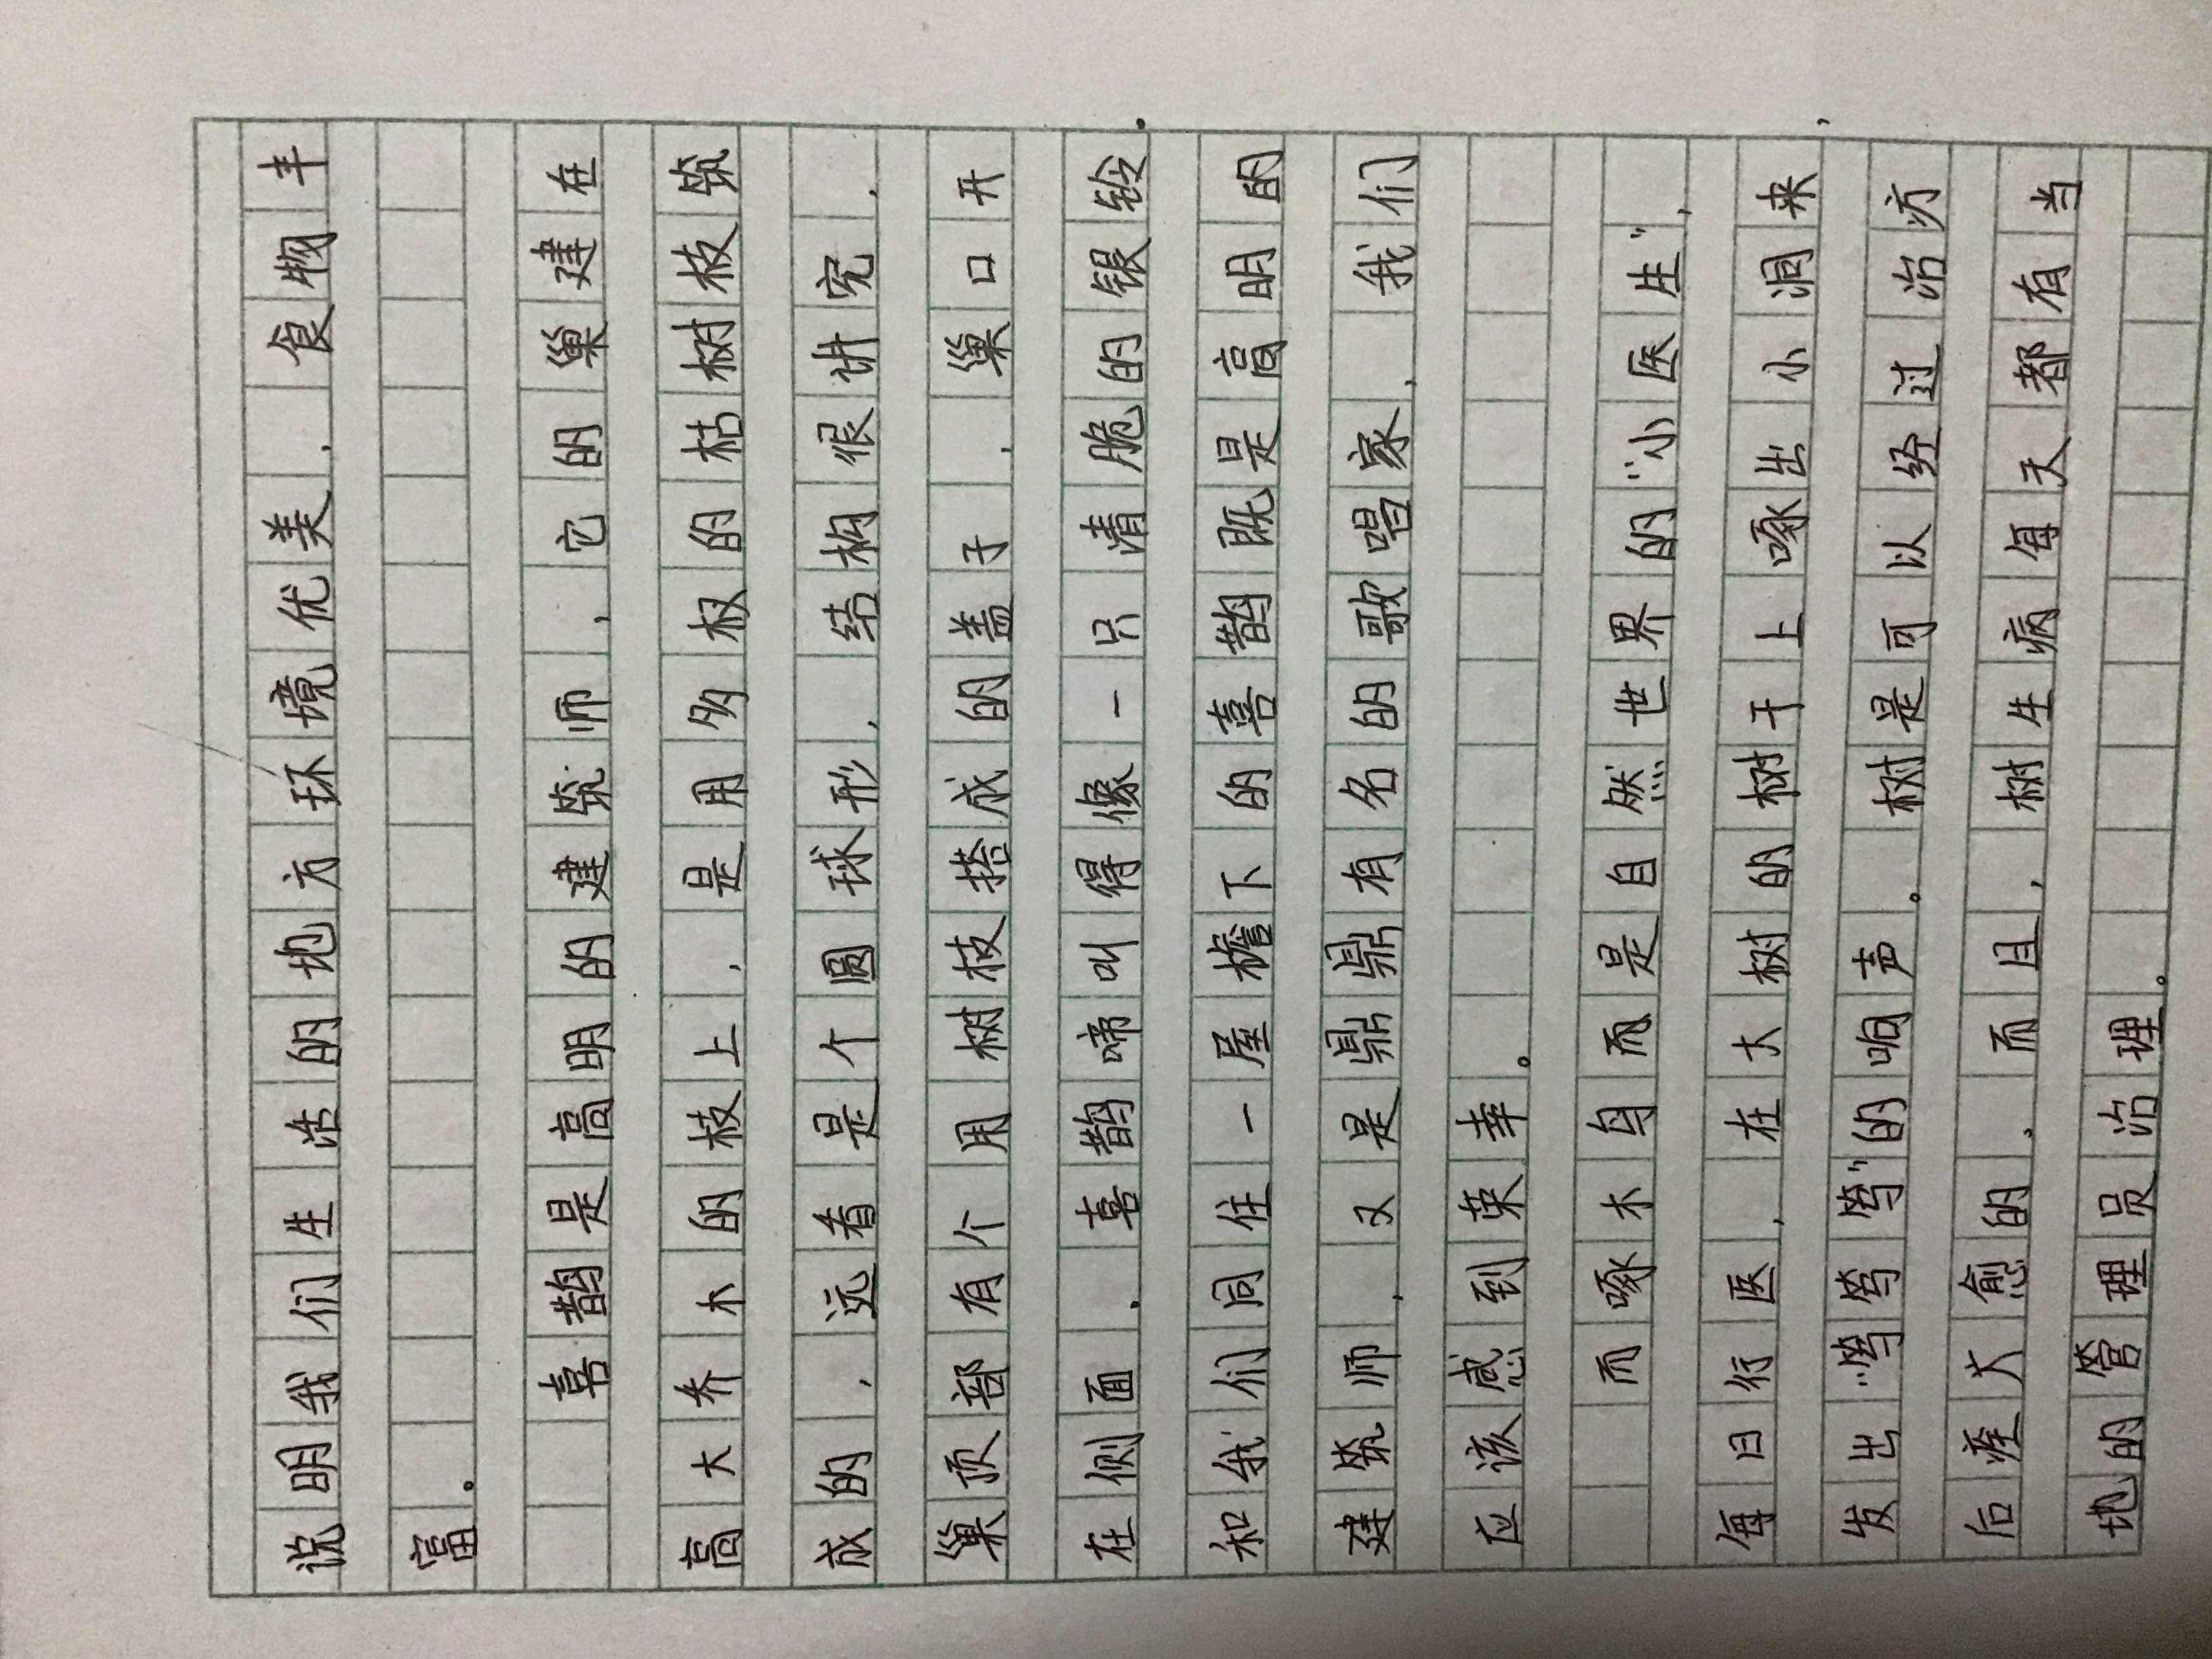 说明我们生活的地方环境优美，食物丰
富。
喜鹊是高明的建筑师，它的巢建在
高大乔木的枝上，是用多杈的枯树枝筑
成的，远看是个圆球形，结构很讲究，
巢顶部有个用树枝搭成的盖子，巢口开
在侧面，喜鹊啼叫得像一只清脆的银铃。
和我们同住一屋檐下的喜鹊既是高明的
建筑师，又是鼎鼎有名的歌唱家，我们
应该感到荣幸。
而啄木鸟而是自然世界的“小医生”，
每日行医，在大树的树干上啄出小洞来，
发出“笃笃笃”的响声。树是可以经过治疗
后痊大愈的，而且，树生病每天都有当
地的管理员治理。